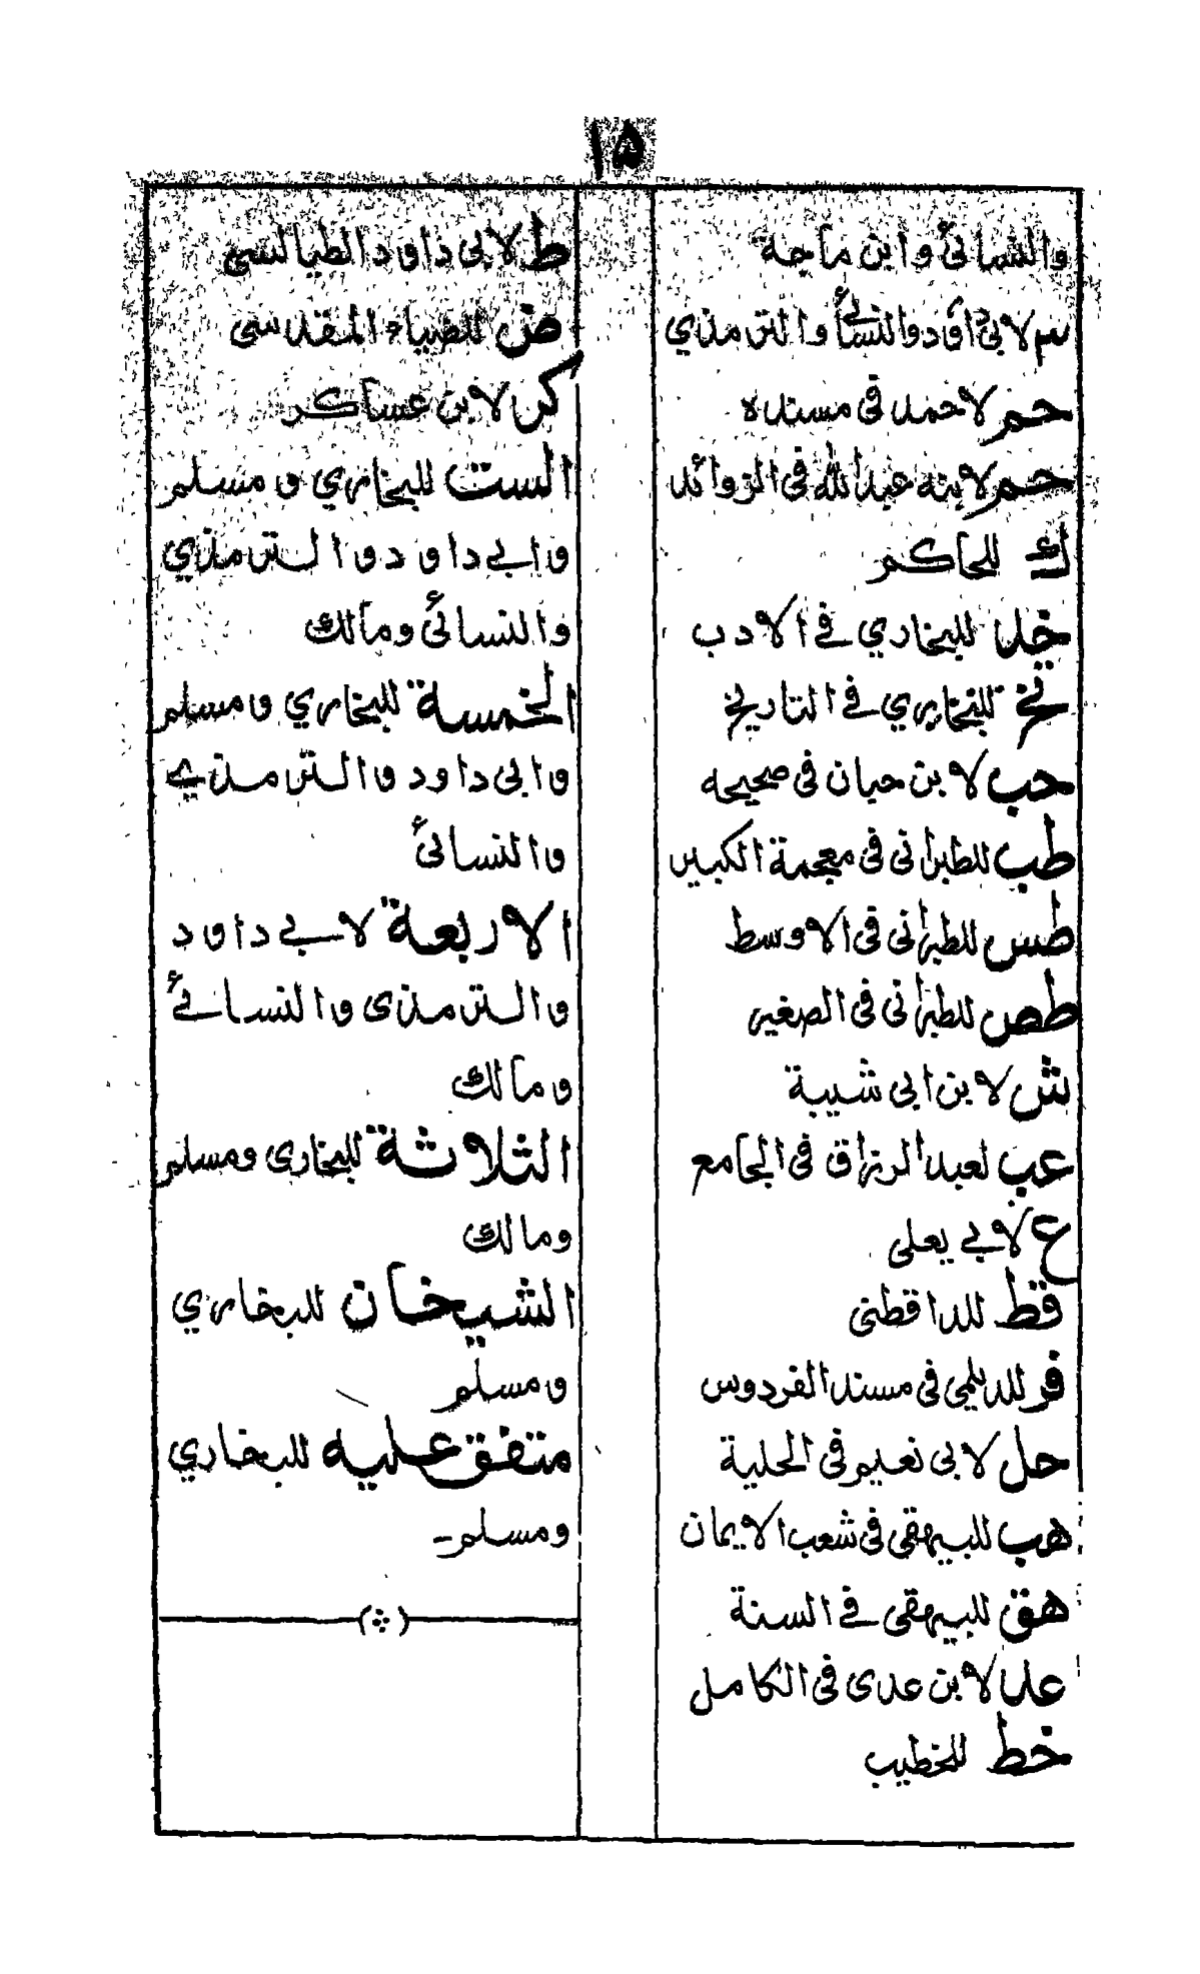 ۱۵
والنسائی وابن ماجة
سم لابی داود والنسائی والترمذي
حم لاحمد فی مسنده
حم لابنه عبدالله فی الزوائد
ك للحاکم
خد للبخاري فے الادب
تخ للبخاري فے التاریخ
حب لابن حبان فی صحیحه
طب للطبرانی فی معجمة الکبیر
طس للطبرانی فی الاوسط
طص للطبرانی فی الصغیر
ش لابن ابی شیبة
عب لعبد الرزاق فی الجامع
ع لابے یعلی
قط للداقطنی
فر للدیلمی فی مسند الفردوس
حل لابی نعیم فی الحلیة
هب للبیهقی فی شعب الایمان
هق للبیهقی فے السنة
عد لابن عدی فی الکامل
خط للخطیب
ط لابی داود الطیالسی
ض للضیاء المقدسی
کر لابن عساکر
الست للبخاري و مسلم
وابے داود والترمذي
والنسائی ومالك
الخمسة للبخاري ومسلم
وابی داود والترمذے
والنسائی
الاربعة لابے داود
والترمذی والنسائے
ومالك
الثلاثة للبخاری ومسلم
ومالك
الشیخان للبخاري
ومسلم
متفق علیه للبخاري
ومسلم۔